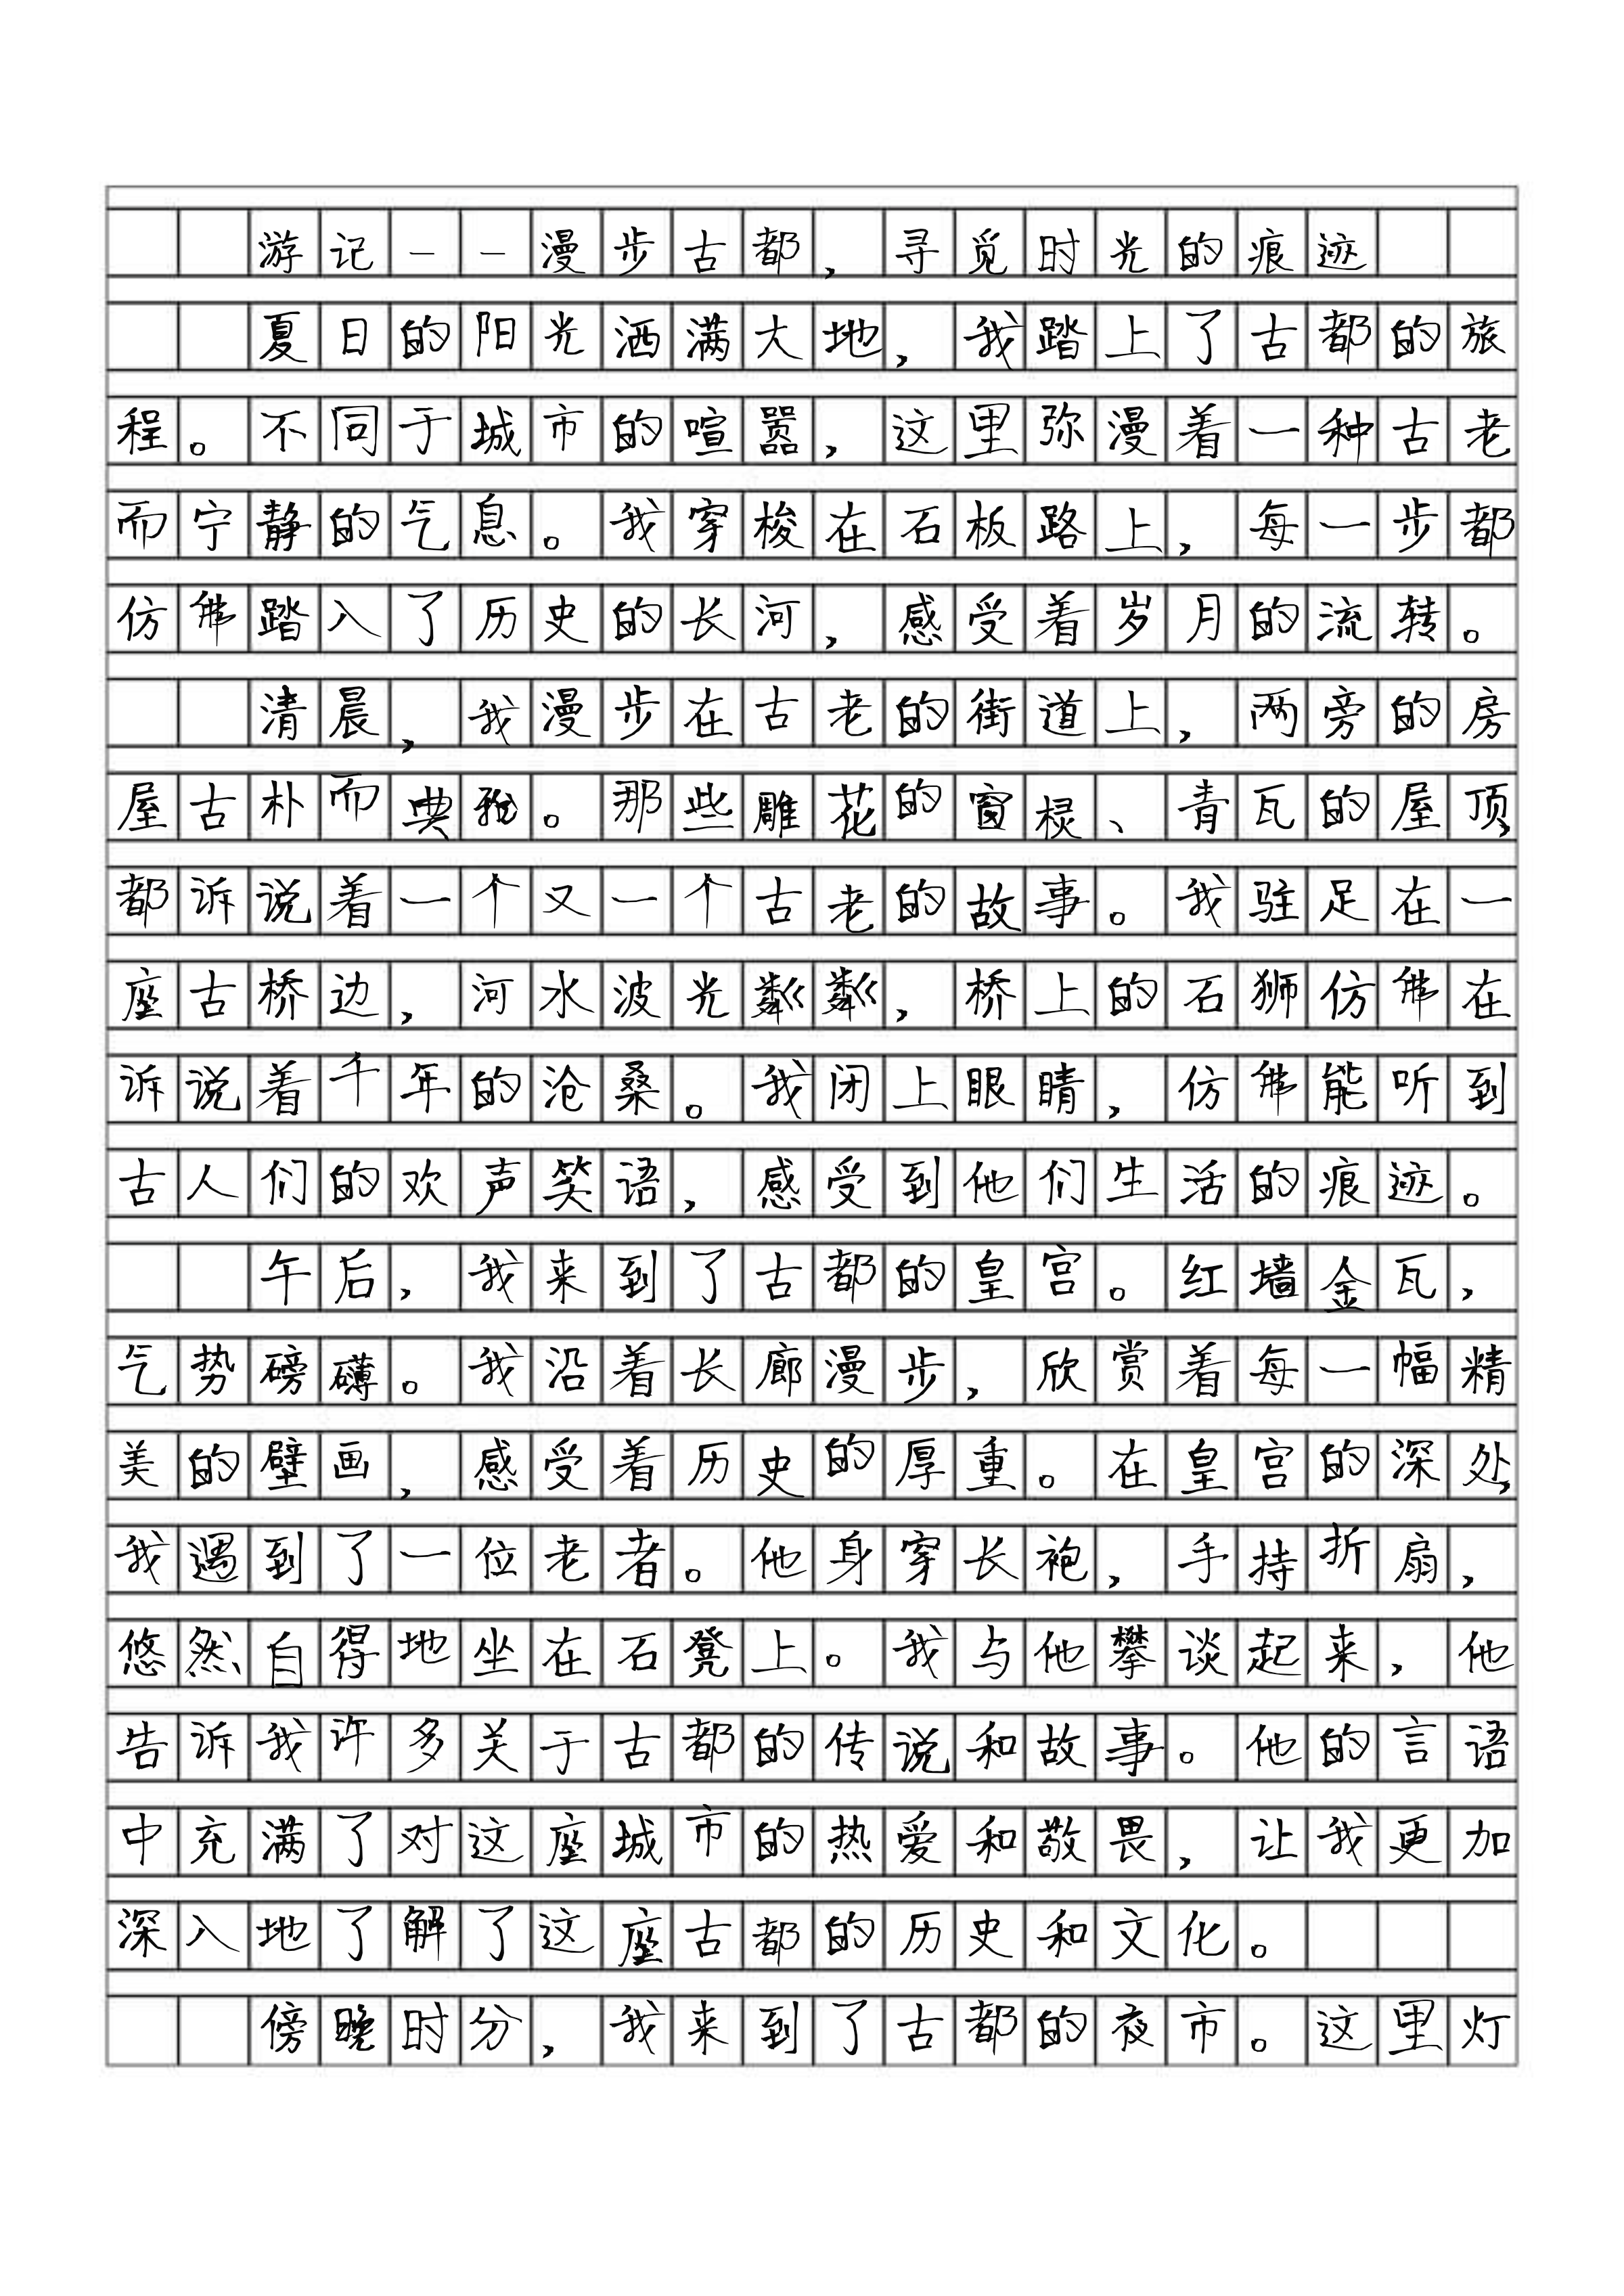 游记——漫步古都，寻觅时光的痕迹
夏日的阳光洒满大地，我踏上了古都的旅
程。不同于城市的喧嚣，这里弥漫着一种古老
而宁静的气息。我穿梭在石板路上，每一步都
仿佛踏入了历史的长河，感受着岁月的流转。
清晨，我漫步在古老的街道上，两旁的房
屋古朴而典雅。那些雕花的窗棂、青瓦的屋顶，
都诉说着一个又一个古老的故事。我驻足在一
座古桥边，河水波光粼粼，桥上的石狮仿佛在
诉说着千年的沧桑。我闭上眼睛，仿佛能听到
古人们的欢声笑语，感受到他们生活的痕迹。
午后，我来到了古都的皇宫。红墙金瓦，
气势磅礴。我沿着长廊漫步，欣赏着每一幅精
美的壁画，感受着历史的厚重。在皇宫的深处，
我遇到了一位老者。他身穿长袍，手持折扇，
悠然自得地坐在石凳上。我与他攀谈起来，他
告诉我许多关于古都的传说和故事。他的言语
中充满了对这座城市的热爱和敬畏，让我更加
深入地了解了这座古都的历史和文化。
傍晚时分，我来到了古都的夜市。这里灯